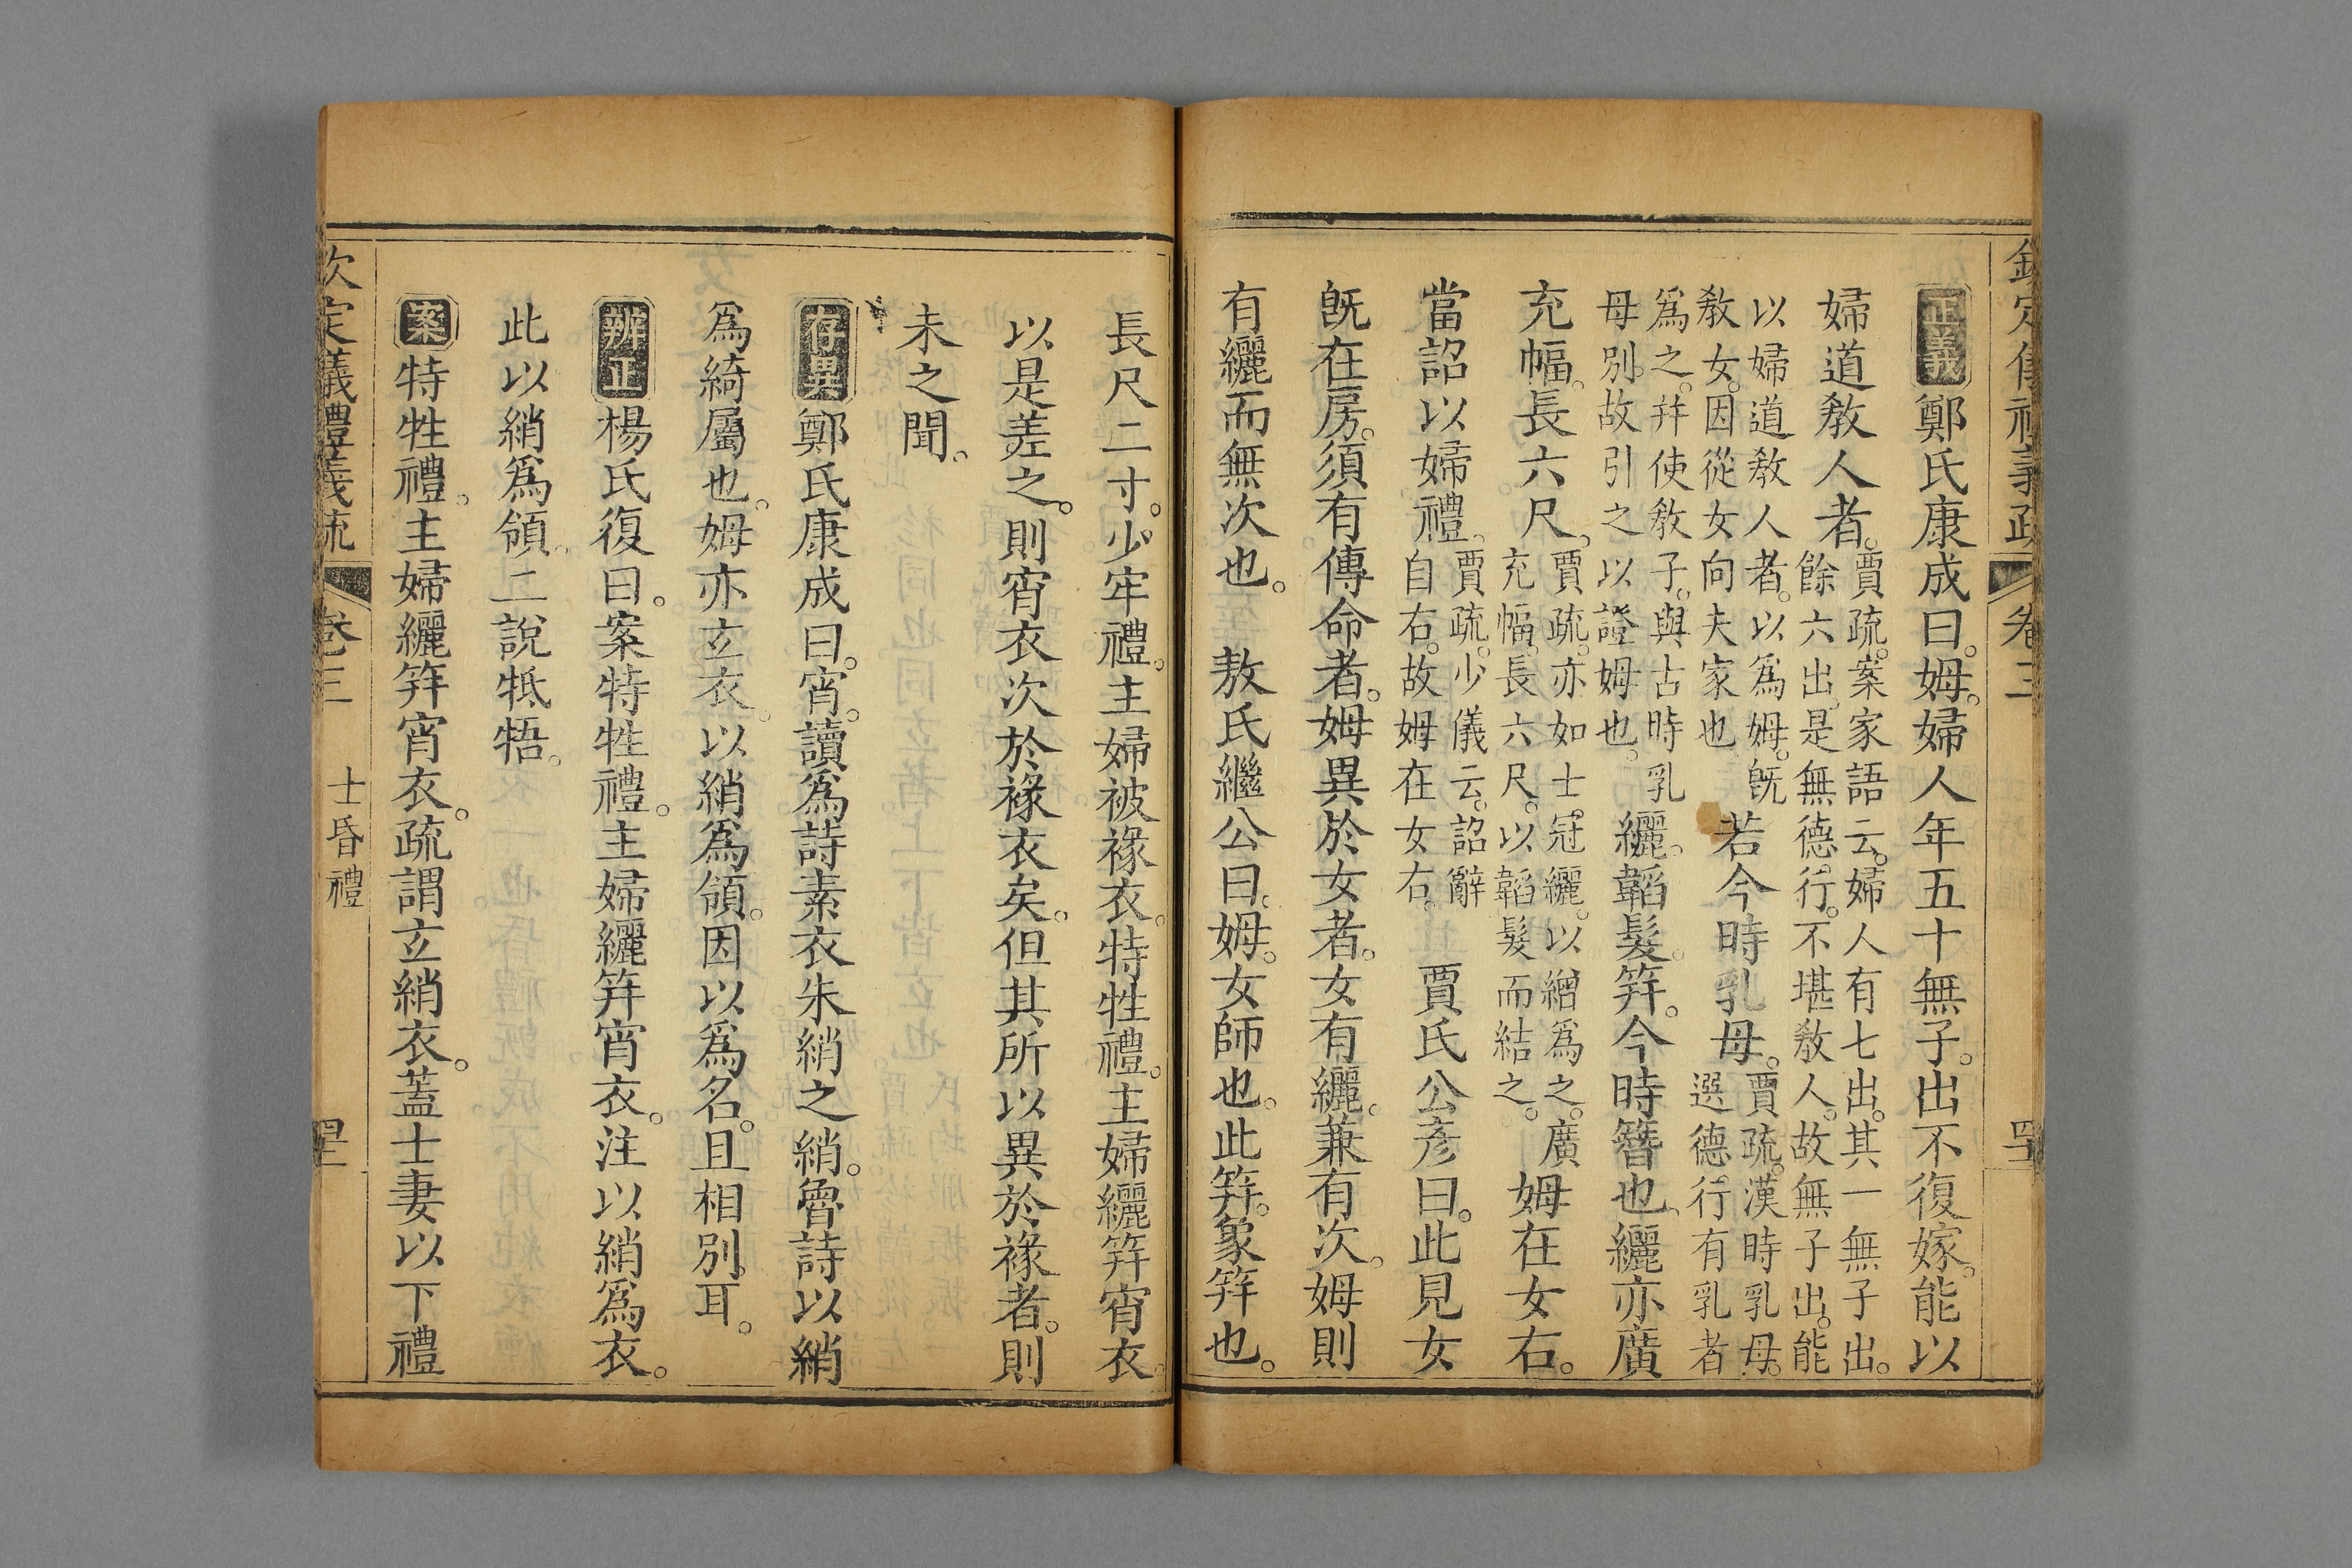 欽定儀禮義疏 卷三
正義鄭氏康成曰。姆。婦人年五十無子。出不復嫁。能以
婦道敎人者。賈疏。案家語云。婦人有七出。其一無子出。
餘六出。是無德行。不堪敎人。故無子出。能
以婦道敎人者。以爲姆。旣
敎女。因從女向夫家也
若今時乳母。賈疏。漢時乳母。
選德行有乳者
爲之。幷使敎子。與古時乳
母別。故引之以證姆也。
纚。韜髮。笄。今時簪也。纚亦廣
充幅。長六尺。賈疏。亦如士冠纚。以繒爲之。廣
充幅。長六尺。以韜髮而結之。
姆在女右。
當詔以婦禮。賈疏。少儀云。詔辭
自右。故姆在女右。
賈氏公彥曰。此見女
旣在房。須有傳命者。姆異於女者。女有纚。兼有次。姆則
有纚而無次也。 敖氏繼公曰。姆。女師也。此笄。象笄也。
長尺二寸。少牢禮。主婦被褖衣。特牲禮。主婦纚笄宵衣。
以是差之。則宵衣次於褖衣矣。但其所以異於褖者。則
未之聞。
存異鄭氏康成曰。宵。讀爲詩素衣朱綃之綃。魯詩以綃
爲綺屬也。姆亦玄衣。以綃爲領。因以爲名。且相別耳。
辨正楊氏復曰。案特牲禮。主婦纚笄宵衣。注以綃爲衣。
此以綃爲領。二說牴牾。
案特牲禮。主婦纚笄宵衣。疏謂玄綃衣。蓋士妻以下禮
欽定儀禮義疏 卷三 士昏禮